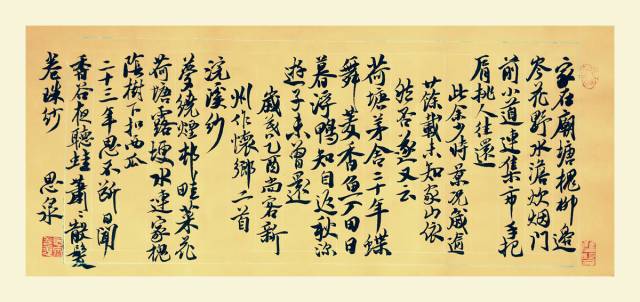 家在廟塘槐柳邊
岑花野水澹炊烟門
前小道連集市手把
肩挑人往還
此余少時景況
載未知家山依
然否又云
荷塘茅舍二十年蝶
舞菱香魚田日
暮浮鴨知自返秋深
遊子未曾還
歲乙酉尚客新
州作懷鄉二首
浣溪紗
夢繞煙村畦菜花
荷塘露埂水連家槐
蔭樹下扣西瓜
二十三年思不斷日聞
香谷夜聽蛙蕭〻散髮
卷珠紗
思泉